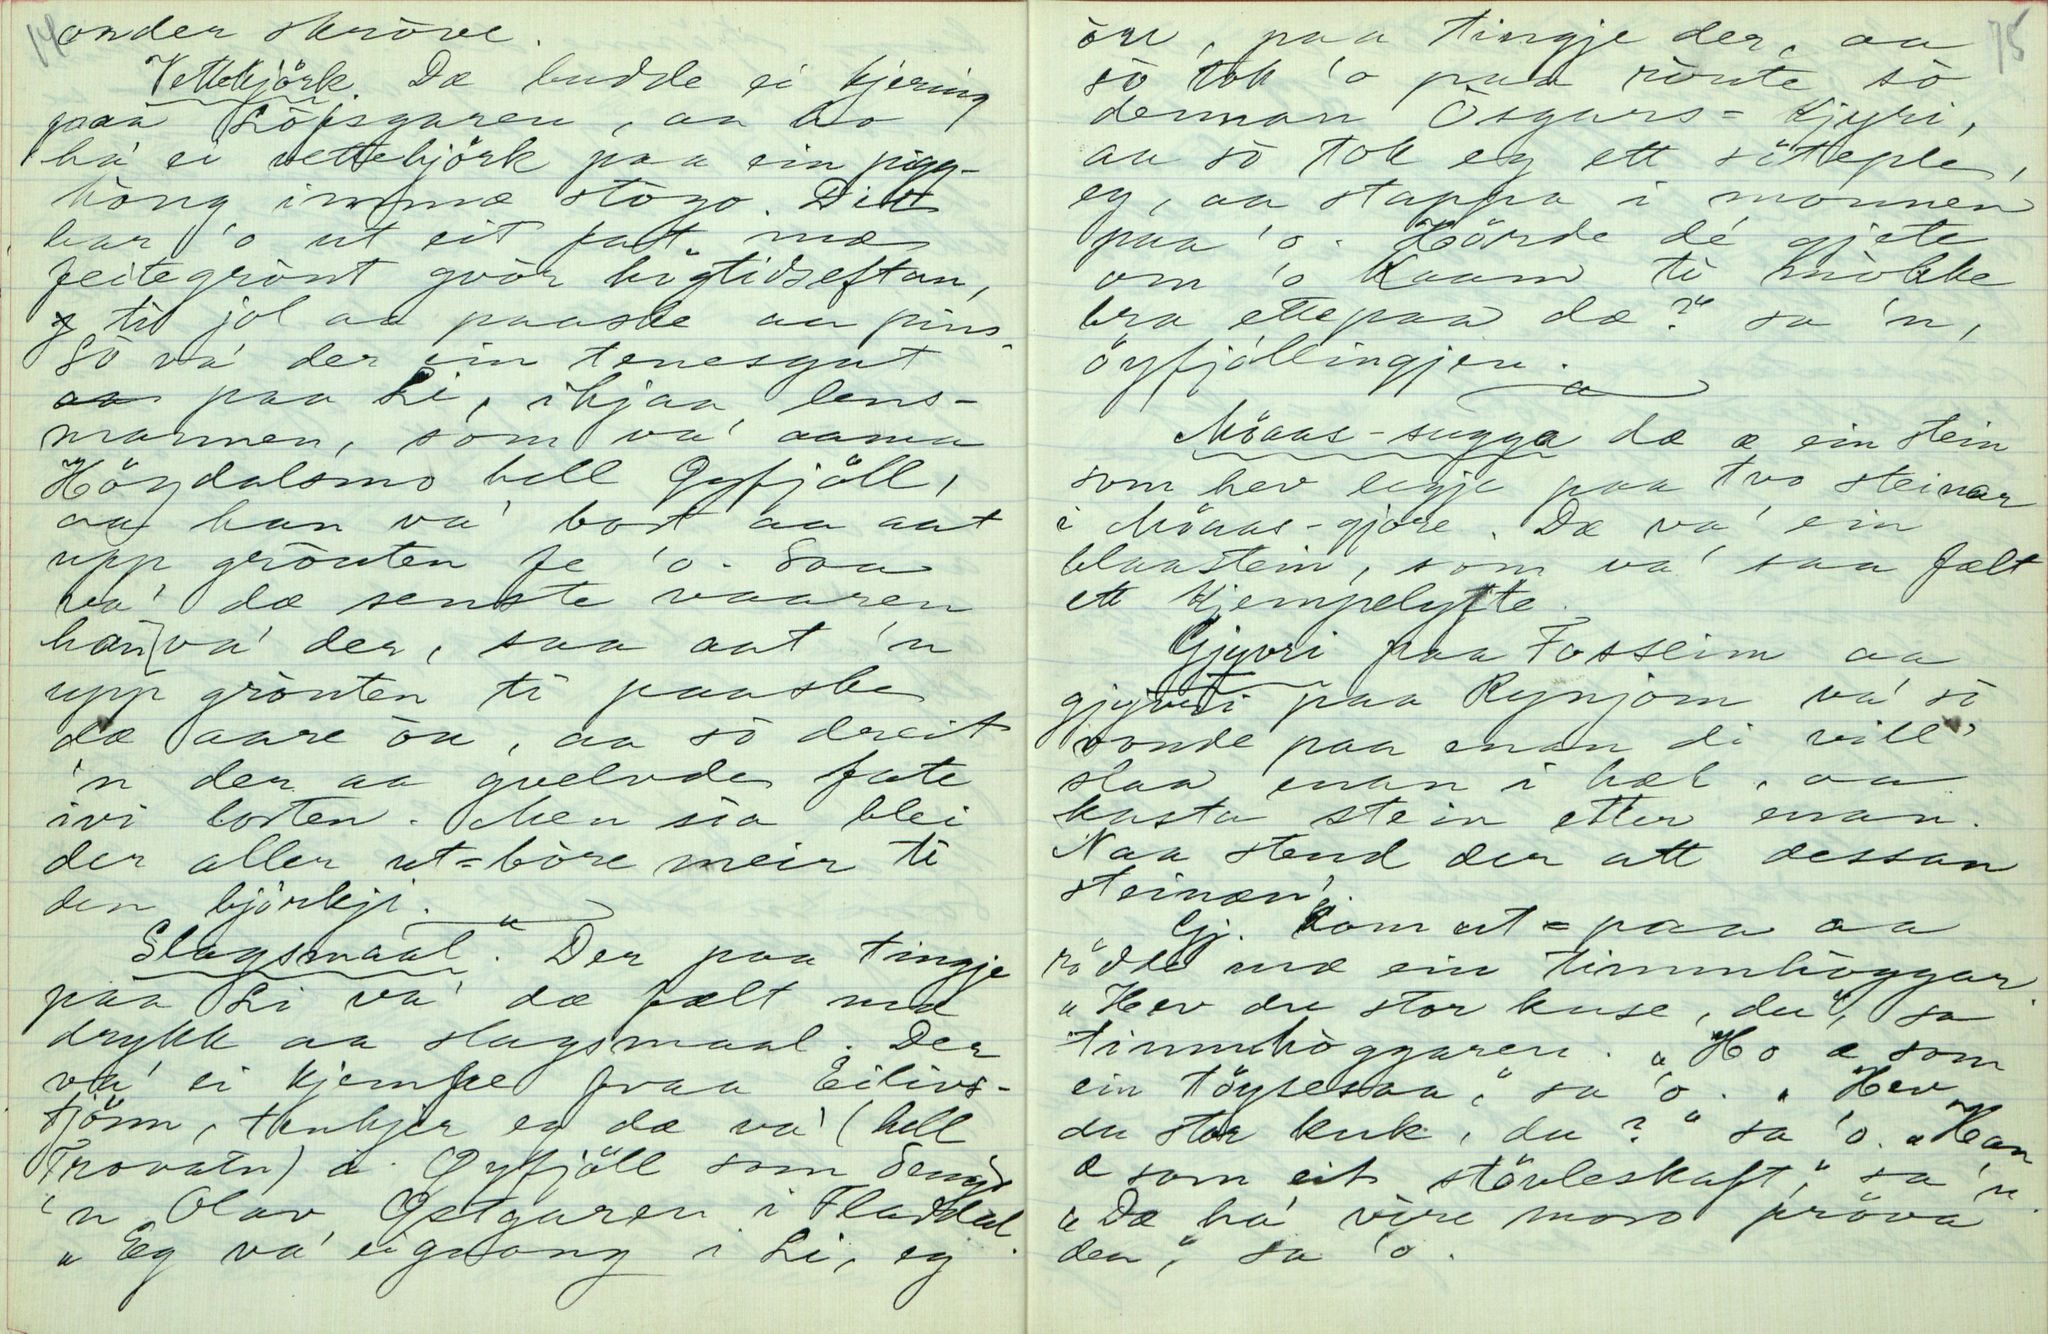 14
onder skröve.
Vettebjörk. Dæ budde ei kjering
paa Löpsgaren, aa ho
há ei vettebjörk paa ein pigg-
haug immæ stogo. Dit
bar 'o ut eit fat mæ
feitegrönt gvör högtidseftan,
ti jol aa paaske aa pins.
Só vá der ein tenesgut
paa Li, ihjaa lens-
mannen, som vá aama
Höydalsmo hell Øyfjöll,
aa han vá bort aa aat
upp grönten fe 'o. Soa
vá dæ senste vaaren
han vá der, saa aat 'n
upp grönten ti paaske
dæ aare öu, aa só dreit
'n der aa gvelvde fate
ivi lorten. Men sia blei
der aller ut=böre meir ti
den björkji.
Slagsmaal. Der paa tingje
paa Li vá dæ fælt mæ
drykk aa slagsmaal. Der
vá ei kjempe fraa Eilivs-
tjönn, tenkjer eg dæ vá (hell
Trovatn) i Øyfjöll som
'n Olav Østgaren i Flatdal.
"Eg vá eigaang i Li, eg
75
öu, paa tingje der, aa
só tok 'o paa römte só
dennan Ósgars-kjyri,
aa só tok eg ett söteple,
eg, aa stappa i monnen
paa 'o. Hörde dé gjete
om 'o kaam ti mökke
bra ettepaa dæ?" sa 'n,
öyfjöllingjen.
Möaas-sugga dæ æ ein stein
som hev legje paa tvo steinar
i Möaas-gjore. Dæ vá ein
blaastein, som vá saa fælt
ett kjempelyfte.
Gjyvri paa Fosseim aa
gjyvri paa Rynjom vá só
vonde paa enan di vill'
slaa enan i hæl, aa
kasta stein etter enan.
Naa stend der att dessan
steinæn'.
Gj. kom ut=paa aa
rödde mæ ein timmhöggar.
"Hev du stor kuse, du", sa
timmhöggaren. "Ho æ som
ein töyresaa," sa 'o. "Hev
du stor kuk, du?" sa 'o. "Han
æ som eit stövleskaft," sa 'n.
"Dæ há vöre moro pröva
den," sa 'o.